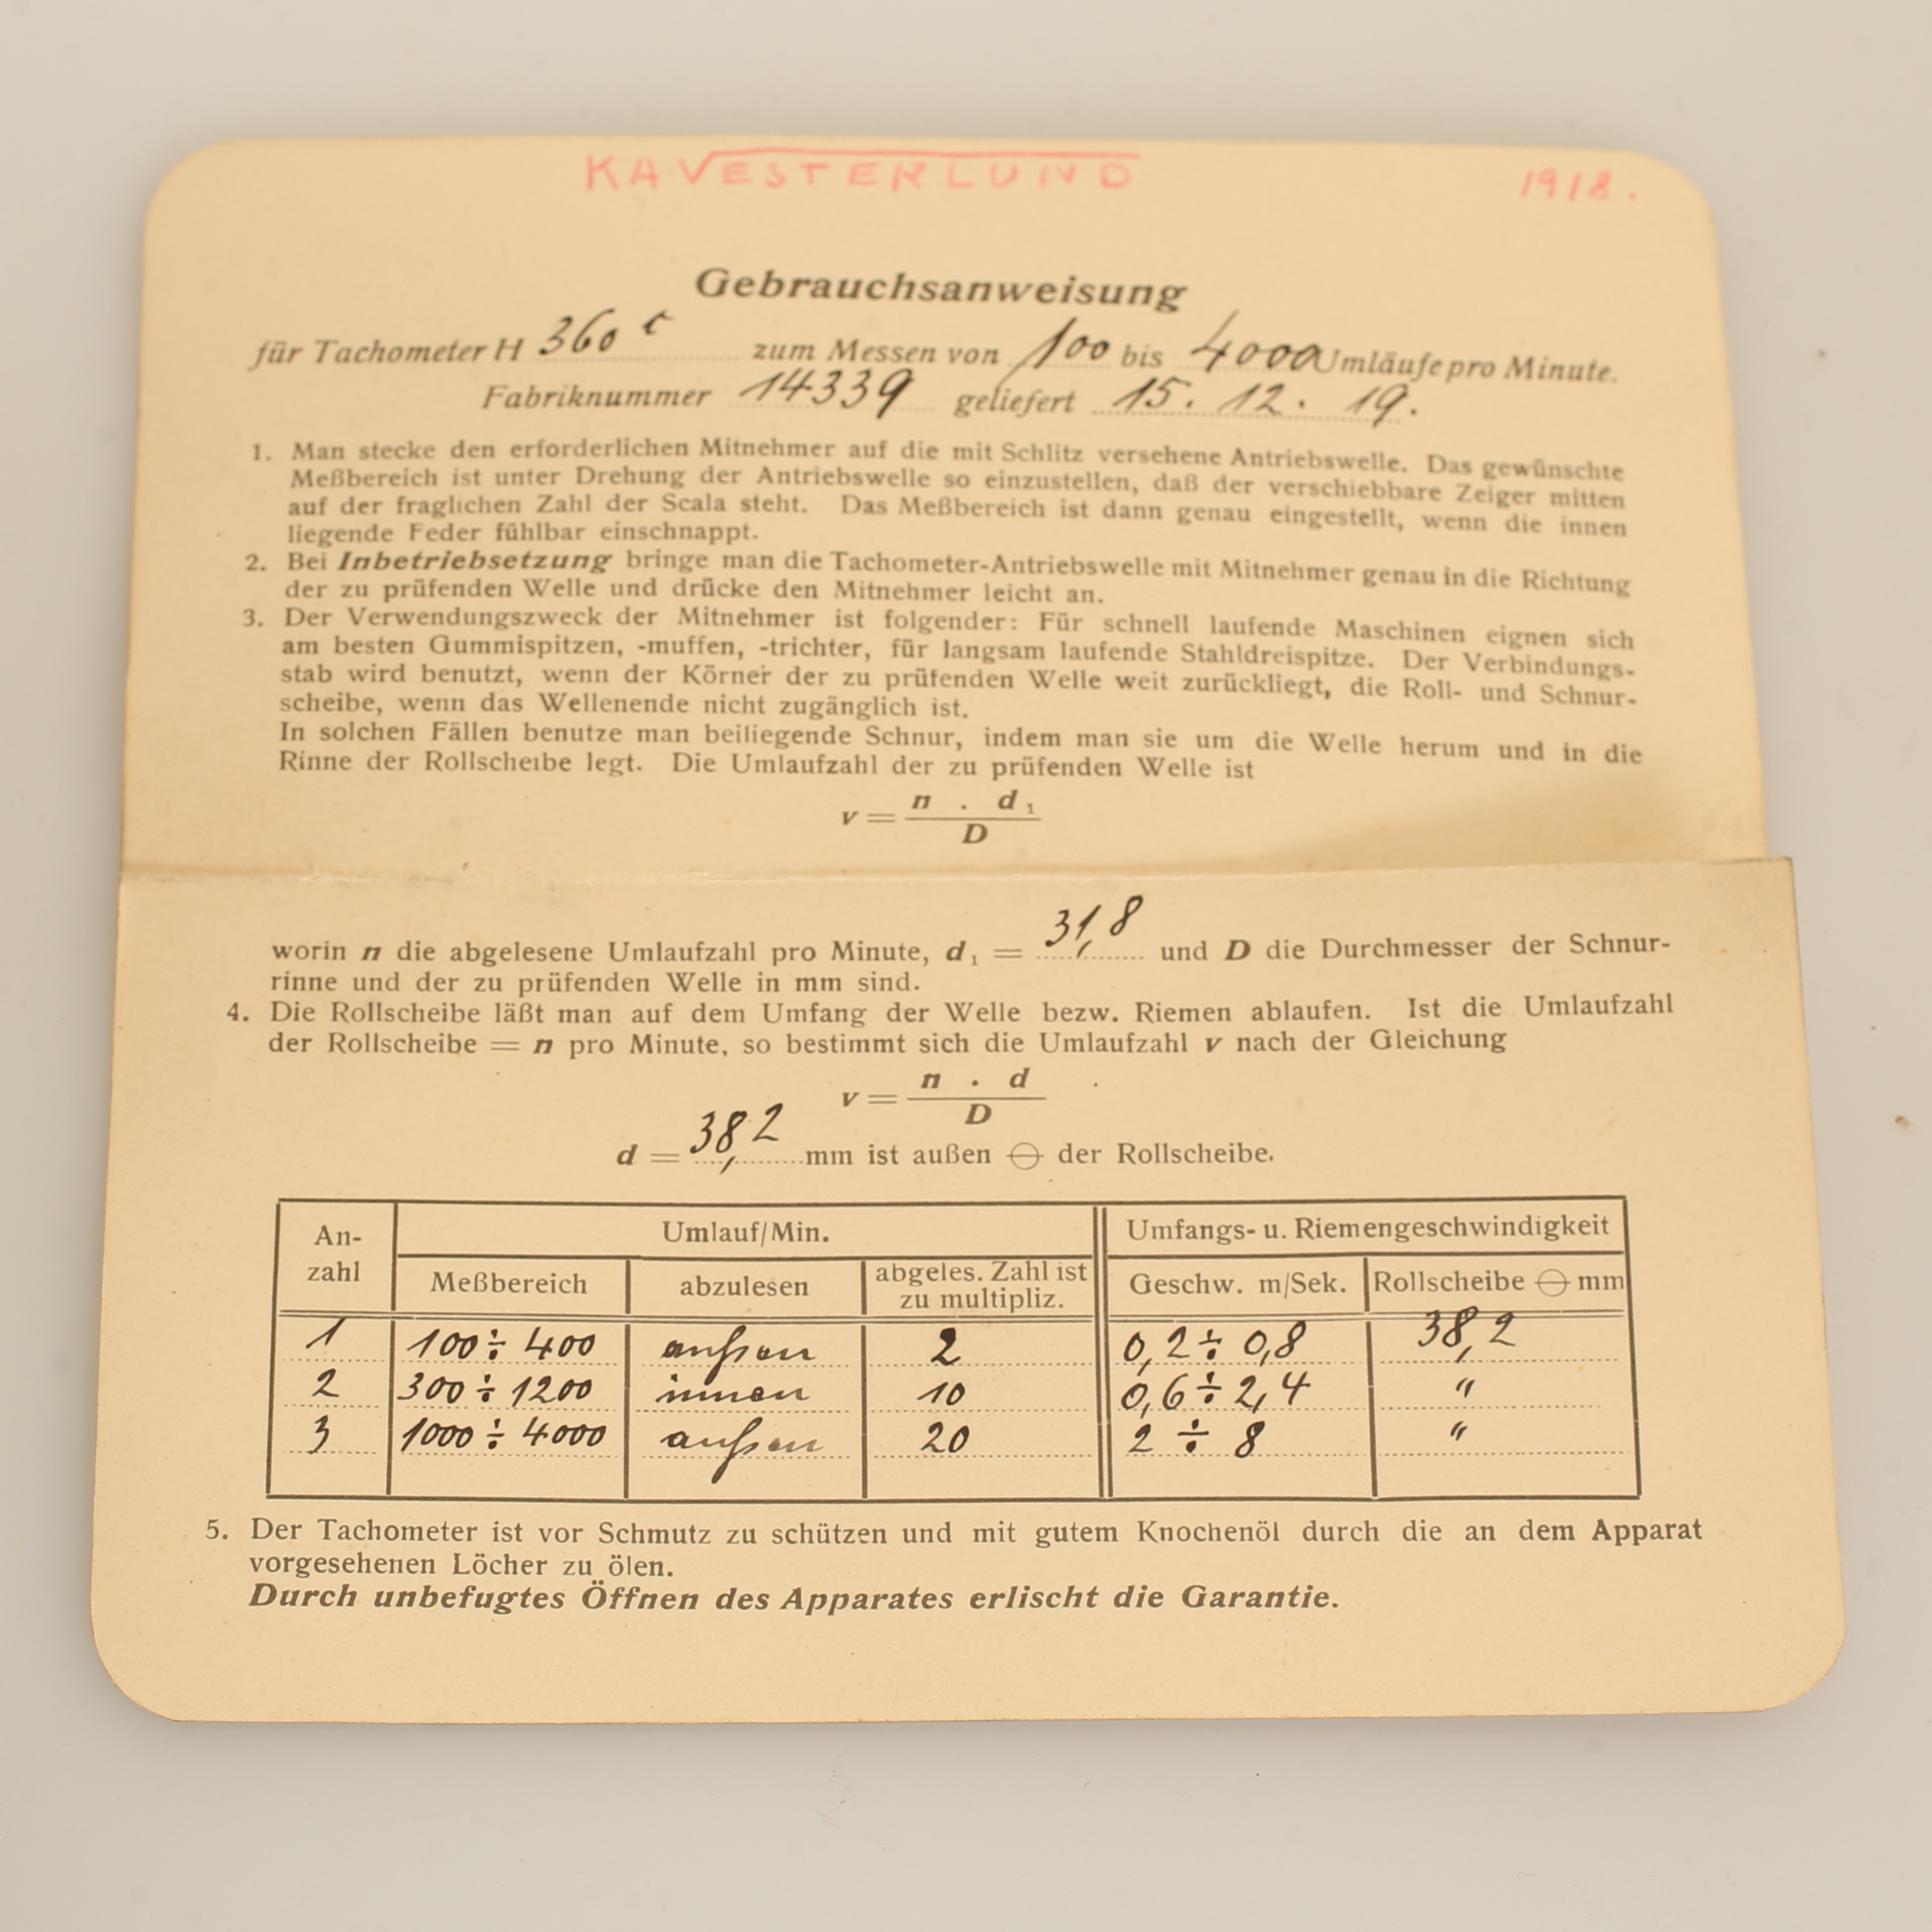 KAVESTERLUND 1918.
Gebrauchsanweisung
für Tachometer H 360 c zum Messen von 100 bis 4000 Umläufe pro Minute.
Fabriknummer 14339 geliefert 15. 12. 19.
1. Man stecke den erforderlichen Mitnehmer auf die mit Schlitz versehene Antriebswelle. Das gewünschte
Meßbereich ist unter Drehung der Antriebswelle so einzustellen, daß der verschiebbare Zeiger mitten
auf der fraglichen Zahl der Scala steht. Das Meßbereich ist dann genau eingestellt, wenn die innen
liegende Feder fühlbar einschnappt.
2. Bei Inbetriebsetzung bringe man die Tachometer-Antriebswelle mit Mitnehmer genau in die Richtung
der zu prüfenden Welle und drücke den Mitnehmer leicht an.
3. Der Verwendungszweck der Mitnehmer ist folgender: Für schnell laufende Maschinen eignen sich
am besten Gummispitzen, -muffen, -trichter, für langsam laufende Stahldreispitze. Der Verbindungs-
stab wird benutzt, wenn der Körner der zu prüfenden Welle weit zurückliegt, die Roll- und Schnur-
scheibe, wenn das Wellenende nicht zugänglich ist.
In solchen Fällen benutze man beiliegende Schnur, indem man sie um die Welle herum und in die
Rinne der Rollscheibe legt. Die Umlaufzahl der zu prüfenden Welle ist
v = n . d₁
D
worin n die abgelesene Umlaufzahl pro Minute, d₁ = 31,8 und D die Durchmesser der Schnur-
rinne und der zu prüfenden Welle in mm sind.
4. Die Rollscheibe läßt man auf dem Umfang der Welle bezw. Riemen ablaufen. Ist die Umlaufzahl
der Rollscheibe = n pro Minute, so bestimmt sich die Umlaufzahl v nach der Gleichung
v = n . d
D
d = 38,2 mm ist außen ⊖ der Rollscheibe.
An-
zahl
Umlauf/Min. Umfangs- u. Riemengeschwindigkeit
Meßbereich abzulesen abgeles. Zahl ist
zu multipliz.
Geschw. m/Sek. Rollscheibe ⊖ mm
1 100 ÷ 400 außen 2 0,2 ÷ 0,8 38,2
2 300 ÷ 1200 innen 10 0,6 ÷ 2,4 "
3 1000 ÷ 4000 außen 20 2 ÷ 8 "
5. Der Tachometer ist vor Schmutz zu schützen und mit gutem Knochenöl durch die an dem Apparat
vorgesehenen Löcher zu ölen.
Durch unbefugtes Öffnen des Apparates erlischt die Garantie.